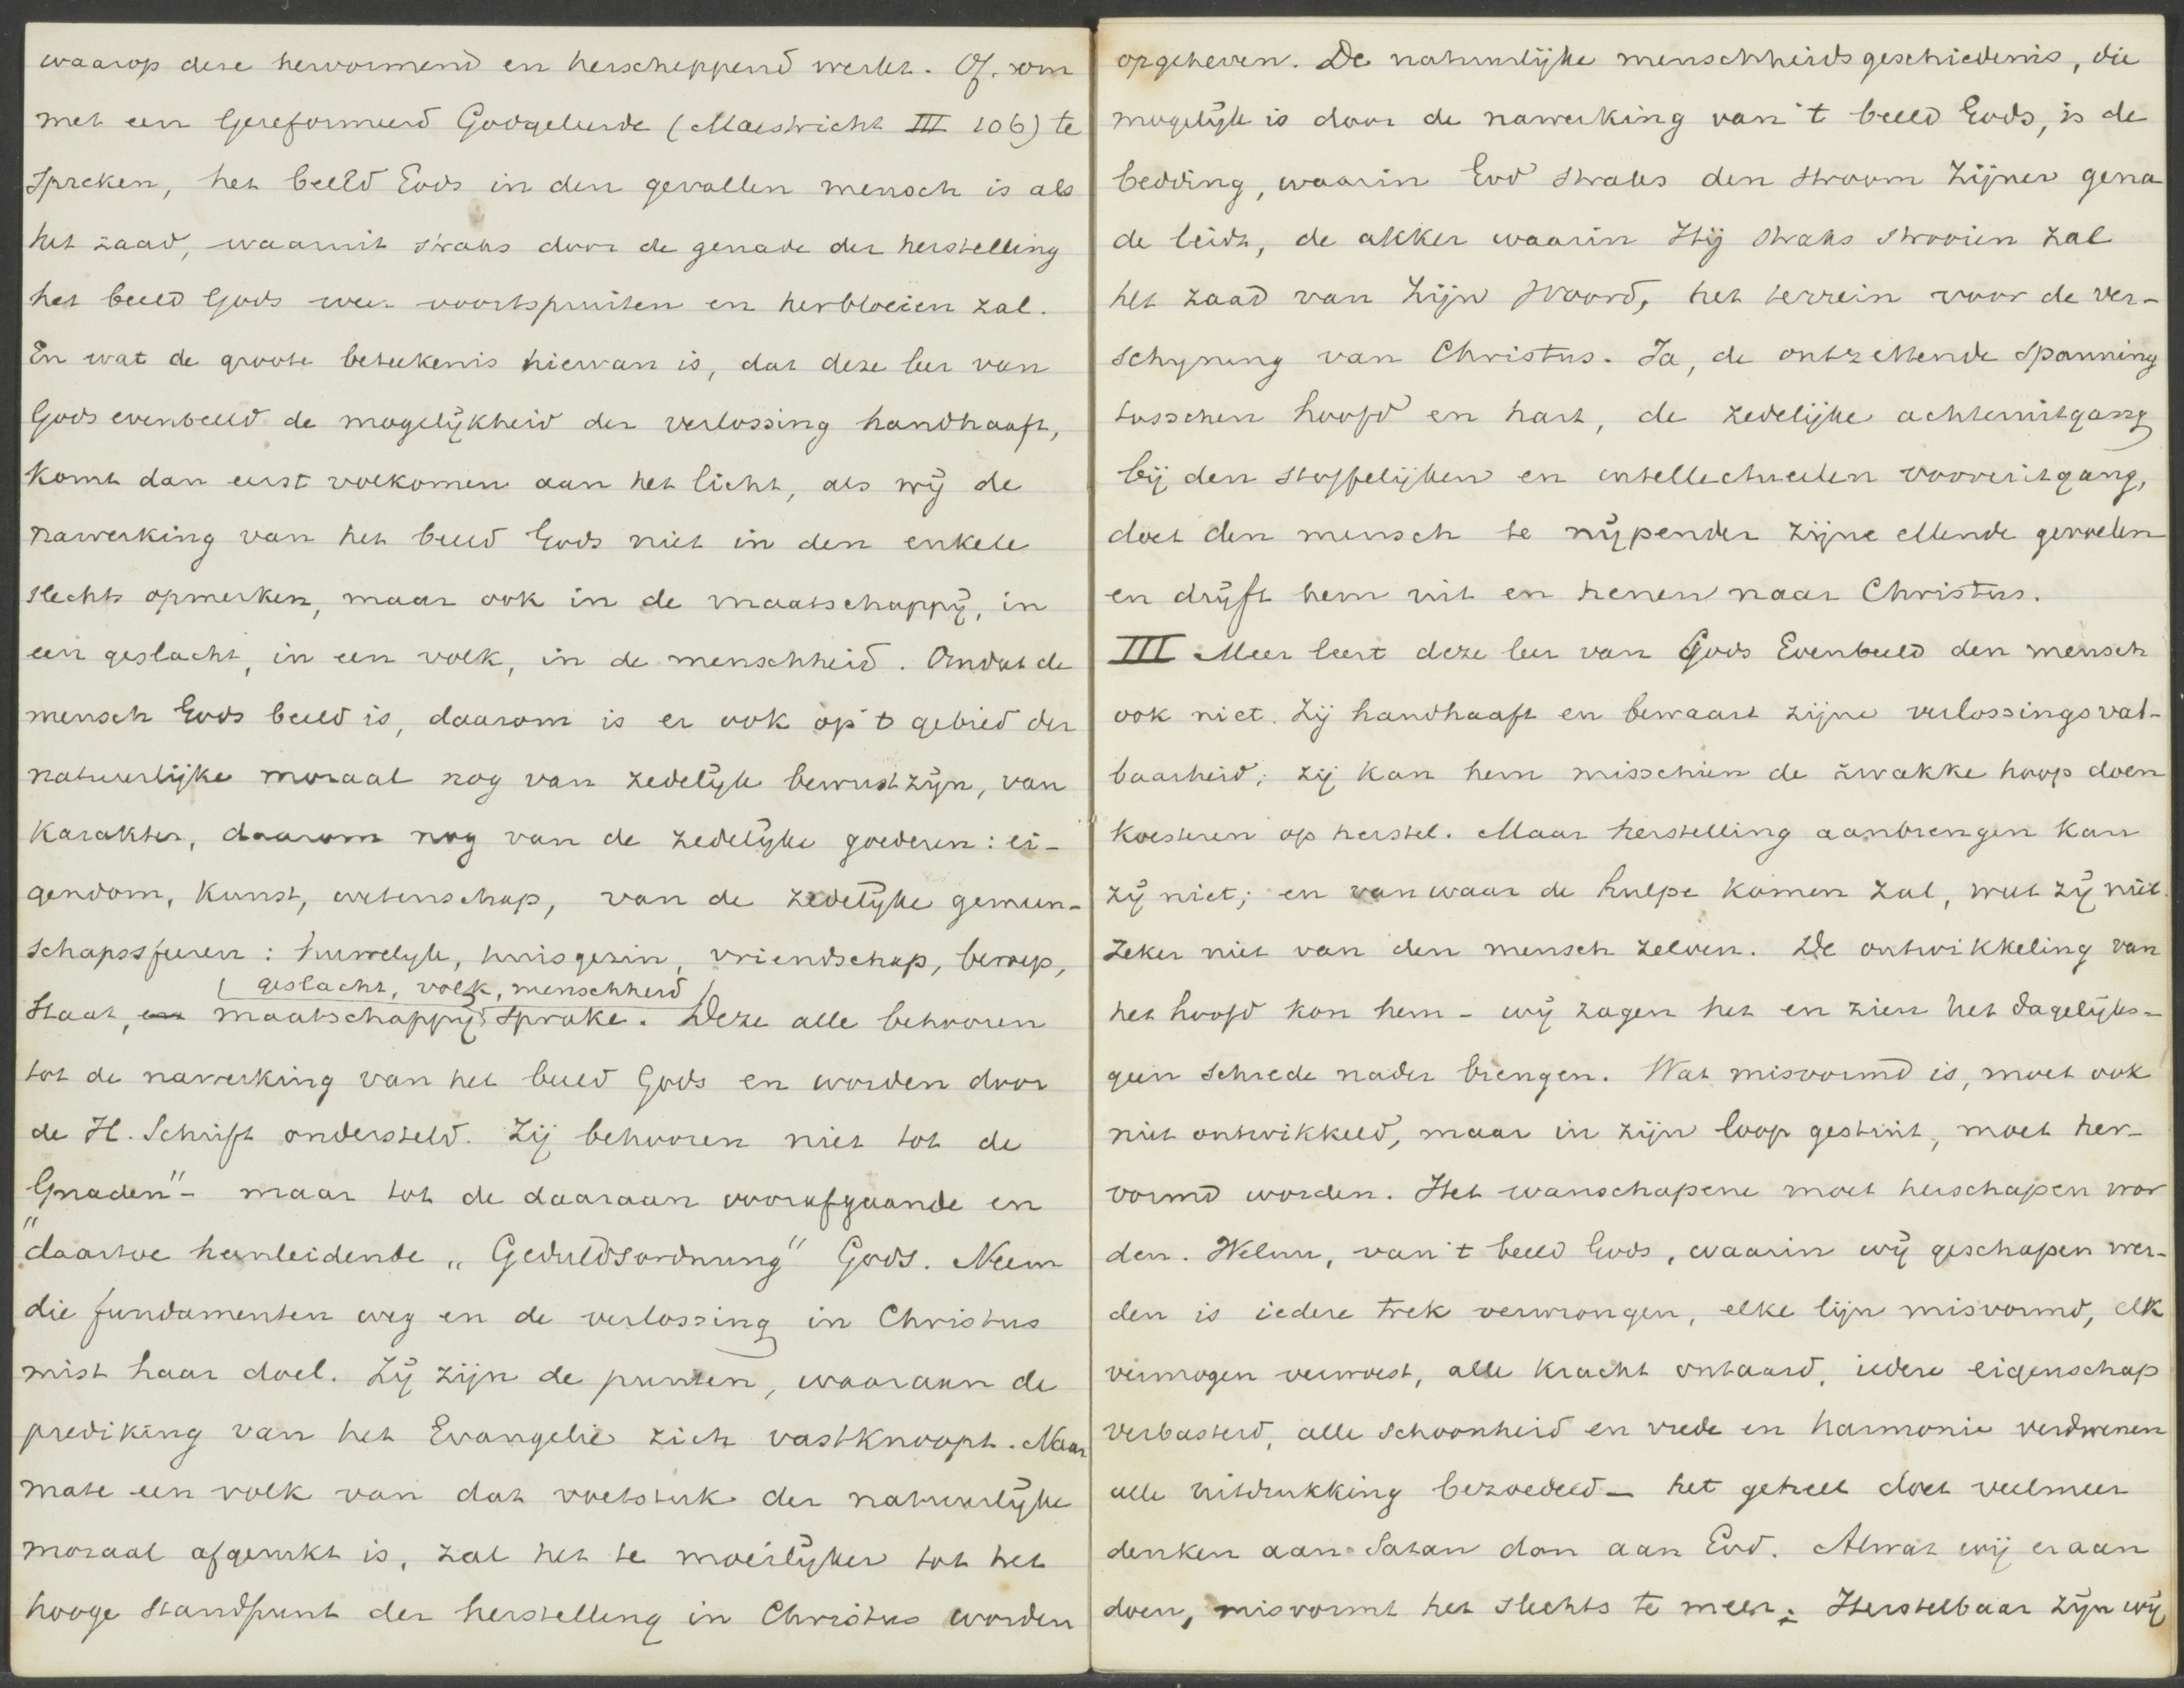 waarop deze hervormend en herscheppend werkt. Of. om
met een Gereformeerd Godgeleerde (Maestricht III 106) te
spreken, het beeld Gods in den gevallen mensch is als
het zaad, waaruit straks door de genade der herstelling
het beeld Gods weer voortspruiten en herbloeien zal.
En wat de groote beteekenis hiervan is, dat deze leer van
Gods evenbeeld de mogelijkheid der verlossing handhaaft,
komt dan eerst volkomen aan het licht, als wij de
nawerking van het beeld Gods niet in den enkele
slechts opmerken, maar ook in de maatschappij, in
een geslacht, in een volk, in de menschheid. Omdat de
mensch Gods beeld is, daarom is er ook op 't gebied der
natuurlijke moraal nog van zedelijk bewustzijn, van
karakter, daarom nog van de zedelijke goederen: ei-
gendom, kunst, wetenschap, van de zedelijke gemeen-
schapssferen: huwelijk, huisgezin, vriendschap, beroep,
geslacht, volk, menschheid
Staat, en maatschappij, sprake. Deze alle behooren
tot de nawerking van het beeld Gods en worden door
de H. Schrift ondersteld. Zij behooren niet tot de
"Gnaden"- maar tot de daaraan voorafgaande en
daartoe heenleidende „Geduldsordnung" Gods. Neem
die fundamenten weg en de verlossing in Christus
mist haar doel. Zij zijn de punten, waaraan de
prediking van het Evangelie zich vastknoopt. Naar
mate een volk van dat voetstuk der natuurlijke
moraal afgerukt is, zal het te moeilijker tot het
hooge standpunt der herstelling in Christus worden
opgeheven. De natuurlijke menschheidsgeschiedenis, die
mogelijk is door de nawerking van 't beeld Gods, is de
bedding, waarin God straks den stroom Zijner gena
de leidt, de akker waarin Hij straks strooien zal
het zaad van Zijn Woord, het terrein voor de ver-
schijning van Christus. Ja, de ontzettende spanning
tusschen hoofd en hart, de zedelijke achteruitgang
bij den stoffelijken en intellectueelen vooruitgang,
doet den mensch te nijpender zijne ellende gevoelen
en drijft hem uit en henen naar Christus.
III Meer leert deze leer van Gods Evenbeeld den mensch
ook niet. Zij handhaaft en bewaart zijne verlossingsvat-
baarheid; zij kan hem misschien de zwakke hoop doen
koesteren op herstel. Maar herstelling aanbrengen kan
zij niet; en van waar de hulpe komen zal, weet zij niet.
Zeker niet van den mensch zelven. De ontwikkeling van
het hoofd kon hem - wij zagen het en zien het dagelijks -
geen schrede nader brengen. Wat misvormd is, moet ook
niet ontwikkeld, maar in zijn loop gestuit, moet her-
vormd worden. Het wanschapene moet herschapen wor
den. Welnu, van 't beeld Gods, waarin wij geschapen wer-
den is iedere trek verwrongen, elke lijn misvormd, elk
vermogen verwoest, alle kracht ontaard, iedere eigenschap
verbasterd, alle schoonheid en vrede en harmonie verdwenen
alle uitdrukking bezoedeld - het geheel doet veelmeer
denken aan Satan dan aan God. Alwat wij eraan
doen, misvormt het slechts te meer. Herstelbaar zijn wij